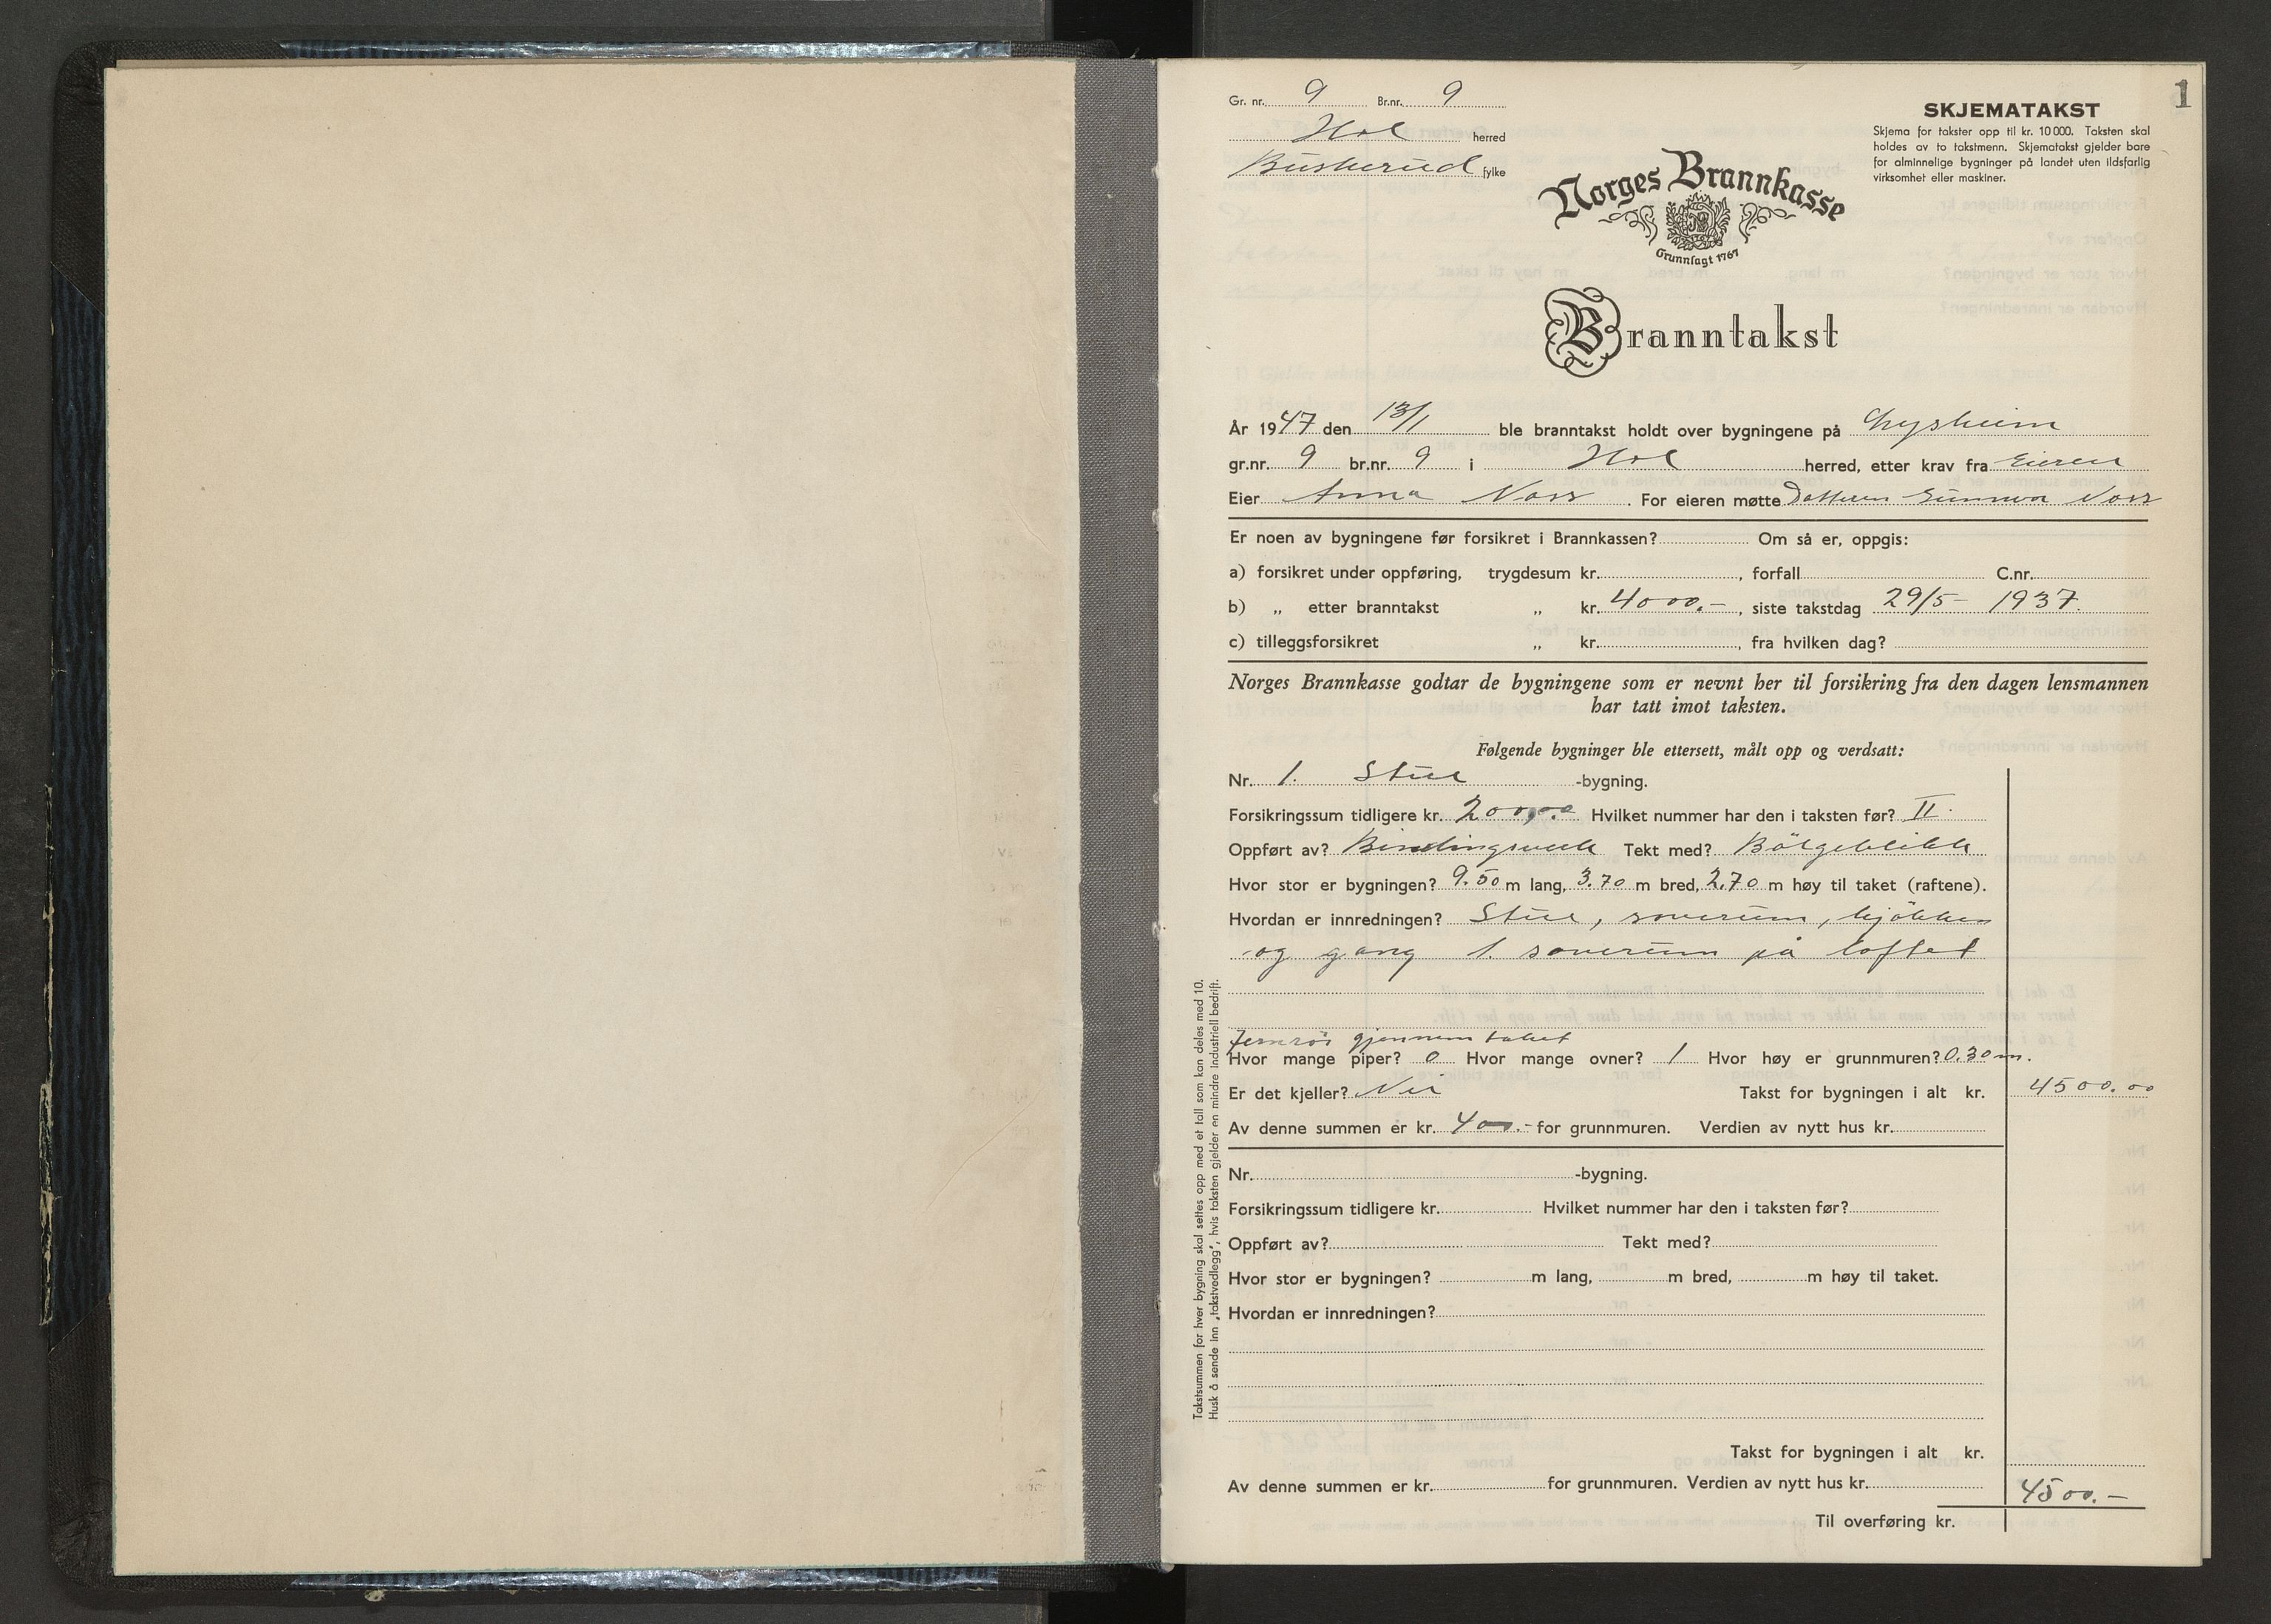 1
Gr. nr. 9 Br.nr. 9
Hol herred
Buskerud fylke
SKJEMATAKST
Skjema for takster opp til kr. 10 000. Taksten skal
holdes av to takstmenn. Skjematakst gjelder bare
for alminnelige bygninger på landet uten ildsfarlig
virksomhet eller maskiner.
Norges Brannkasse
Grunnlagt 1767
Branntakst
År 1947 den 13/1 ble branntakst holdt over bygningene på
gr.nr. 9 br.nr. 9 i Hol herred, etter krav fra Eieren
Eier Anna Noss. For eieren møtte Datteren Gunnvor Noss
Er noen av bygningene før forsikret i Brannkassen? Om så er, oppgis:
a) forsikret under oppføring, trygdesum kr. , forfall C.nr.
b) „ etter branntakst „ kr. 4000.- , siste takstdag 29/5 - 1937.
c) tilleggsforsikret „ kr. , fra hvilken dag?
Norges Brannkasse godtar de bygningene som er nevnt her til forsikring fra den dagen lensmannen
har tatt imot taksten.
Følgende bygninger ble ettersett, målt opp og verdsatt:
Nr. 1. Stue -bygning.
Forsikringssum tidligere kr. Hvilket nummer har den i taksten før? II.
Oppført av? Bindingsverk Tekt med? Bölgeblikk
Hvor stor er bygningen? 9.50 m lang, 3.70 m bred, 2.70 m høy til taket (raftene).
Hvordan er innredningen? Stue, soverum, kjökken
og gang 1. soverum på loftet
Jernrör gjennem taket
Hvor mange piper? 0 Hvor mange ovner? 1 Hvor høy er grunnmuren? 0.30 m.
Er det kjeller? Nei Takst for bygningen i alt kr. 4500.00
Av denne summen er kr. 400.- for grunnmuren. Verdien av nytt hus kr.
Nr. -bygning.
Forsikringssum tidligere kr. Hvilket nummer har den i taksten før?
Oppført av? Tekt med?
Hvor stor er bygningen? m lang, m bred, m høy til taket.
Hvordan er innredningen?
Takst for bygningen i alt kr.
Av denne summen er kr. for grunnmuren. Verdien av nytt hus kr.
4500.-
Til overføring kr.
Takstsummen for hver bygning skal settes opp med et tall som kan deles med 10.
Husk å sende inn „takstvedlegg", hvis taksten gjelder en mindre industriell bedrift.